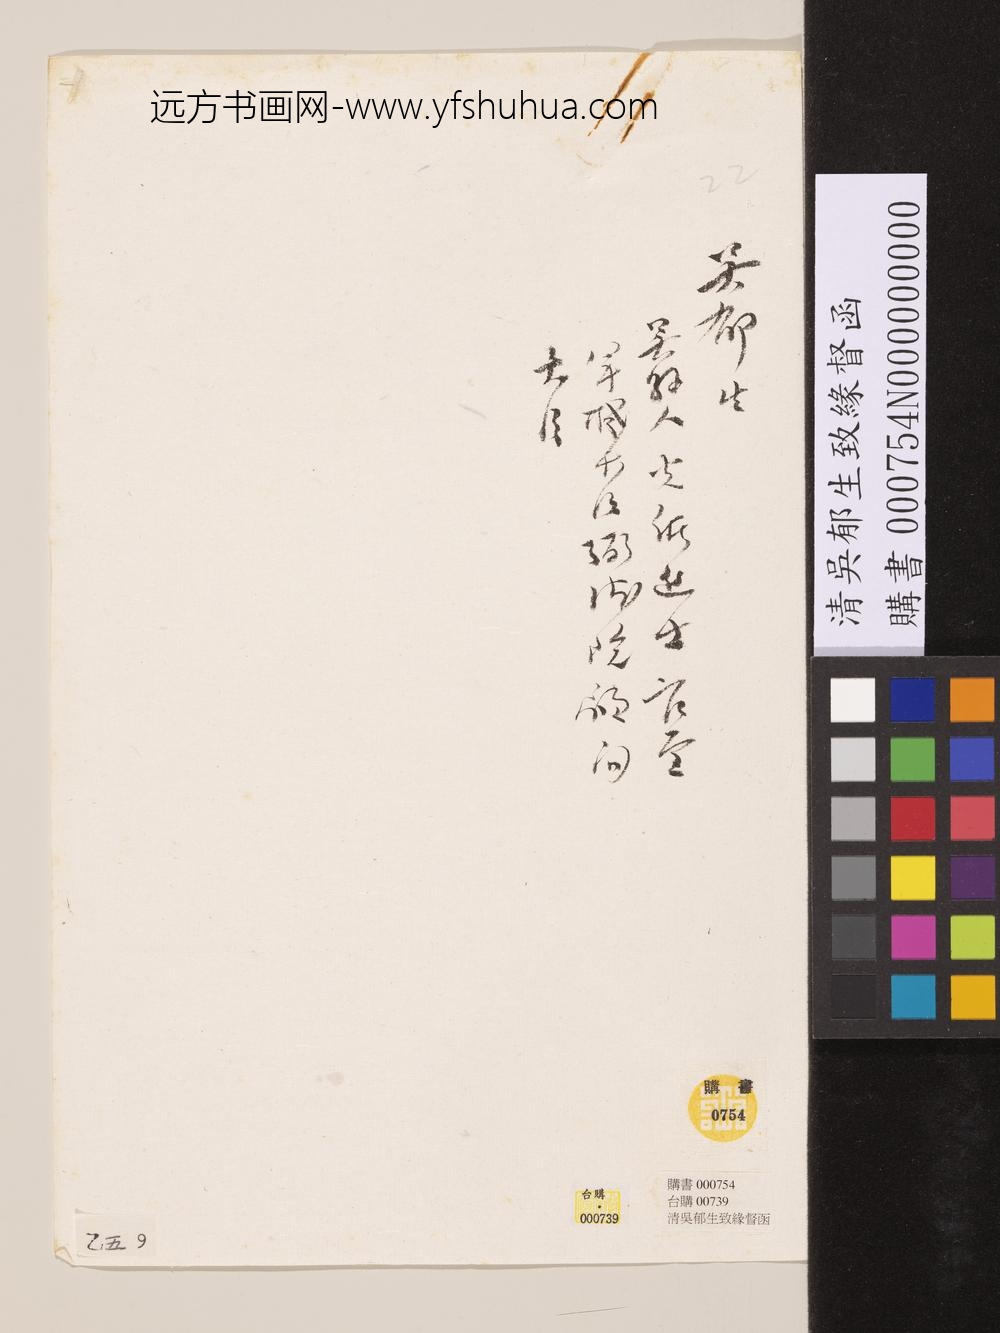 远方书画网-www.yfshuhua.com
22
吴郁生
吴縣人光緒進士官至
軍機大臣弼德院顧問
大臣
清吳郁生致緣督函
購書 000754N000000000
購書
0754
台購
000739
購書 000754
台購 00739
清吳郁生致緣督函
乙五 9